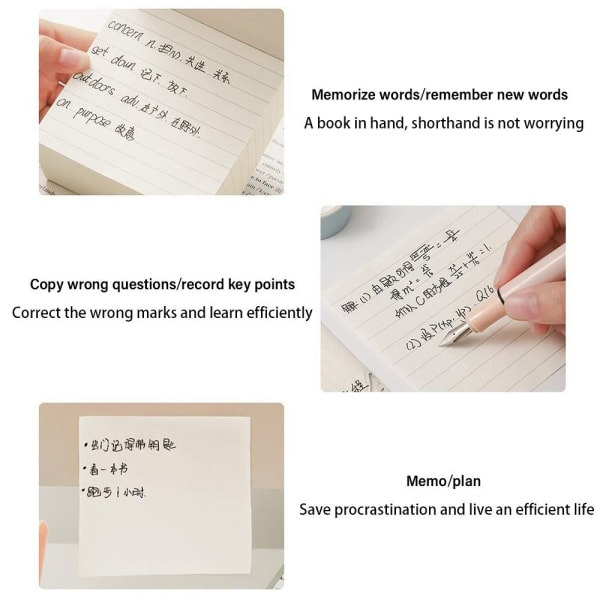 concern n. 担心, 关心, 关系
get down 记下, 放下
outdoors adv. 在户外, 在野外
on purpose 故意
Memorize words/remember new words
A book in hand, shorthand is not worrying
Copy wrong questions/record key points
Correct the wrong marks and learn efficiently
解 (1) 由题可得
得 m²=
所以 C 的方程
=1.
(2) 设P(xp, yp), Q(6
• 出门记得带钥匙
• 看一本书
• 跑步1小时.
Memo/plan
Save procrastination and live an efficient life